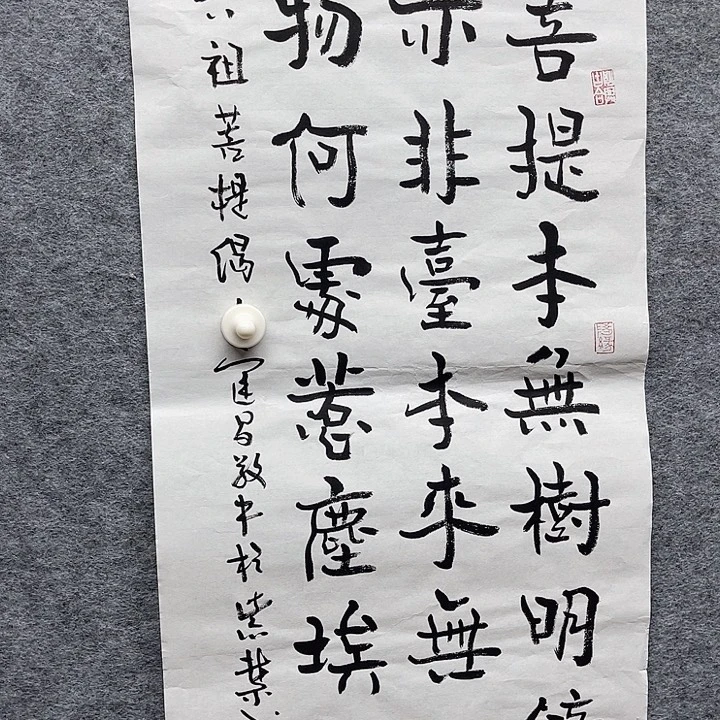 菩提本無樹明
亦非臺本來無
物何處惹塵埃
祖菩提偈
昌敬书於紫禁